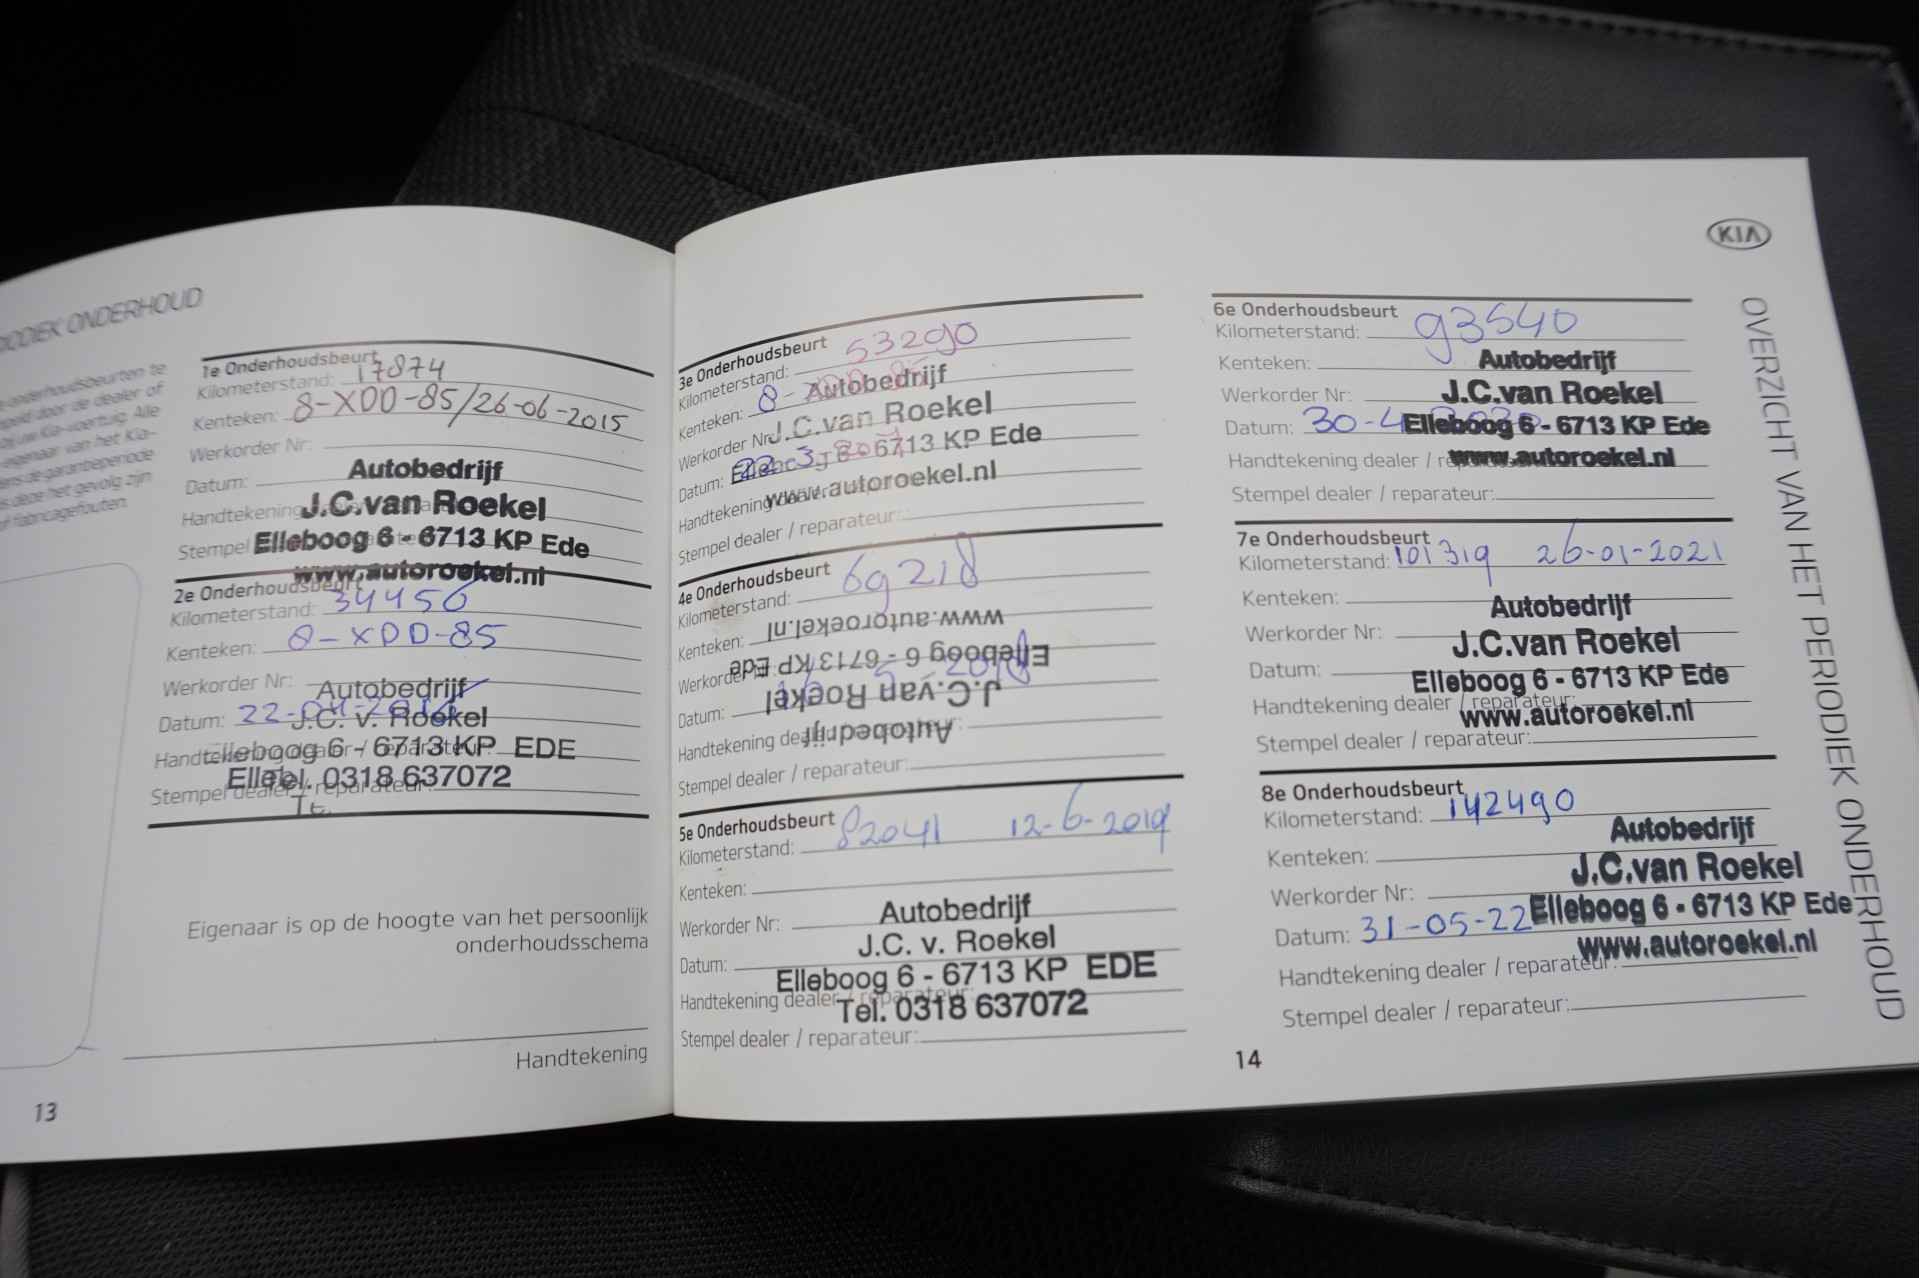 PERIODIEK ONDERHOUD
onderhoudsbeurten te
door de dealer of
uw Kia-voertuig. Alle
eigenaar van het Kia-
de garantieperiode
deze het gevolg zijn
of fabricagefouten.
1e Onderhoudsbeurt
Kilometerstand: 17874
Kenteken: 8-XDD-85/26-06-2015
Werkorder Nr:
Datum:
Autobedrijf
Handtekening
J.C.van Roekel
Stempel
Elleboog 6 - 6713 KP Ede
www.autoroekel.nl
2e Onderhoudsbeurt
Kilometerstand: 34456
Kenteken: 8-XDD-85
Werkorder Nr:
Autobedrijf
Datum: 22-04-
J.C. v. Roekel
Handtekening dealer / reparateur:
Elleboog 6 - 6713 KP EDE
Stempel dealer / reparateur:
Tel. 0318 637072
Eigenaar is op de hoogte van het persoonlijk
onderhoudsschema
Handtekening
13
3e Onderhoudsbeurt
Kilometerstand: 53290
Kenteken: 8-
Autobedrijf
Werkorder Nr:
J.C.van Roekel
Datum: 22-3-
6713 KP Ede
Handtekening
www.autoroekel.nl
Stempel dealer / reparateur:
4e Onderhoudsbeurt
Kilometerstand: 69218
Kenteken:
www.autoroekel.nl
Werkorder Nr:
Elleboog 6 - 6713 KP Ede
Datum:
J.C.van Roekel
Handtekening dealer / reparateur:
Autobedrijf
Stempel dealer / reparateur:
5e Onderhoudsbeurt
Kilometerstand: 82041 12-6-2019
Kenteken:
Werkorder Nr:
Autobedrijf
J.C. v. Roekel
Datum:
Elleboog 6 - 6713 KP EDE
Handtekening dealer / reparateur:
Tel. 0318 637072
Stempel dealer / reparateur:
KIA
6e Onderhoudsbeurt
Kilometerstand: 93540
Kenteken:
Autobedrijf
Werkorder Nr:
J.C.van Roekel
Datum: 30-4
Elleboog 6 - 6713 KP Ede
Handtekening dealer /
www.autoroekel.nl
Stempel dealer / reparateur:
7e Onderhoudsbeurt
Kilometerstand: 101319 26-01-2021
Kenteken:
Autobedrijf
Werkorder Nr:
J.C.van Roekel
Datum:
Elleboog 6 - 6713 KP Ede
Handtekening dealer / reparateur:
www.autoroekel.nl
Stempel dealer / reparateur:
8e Onderhoudsbeurt
Kilometerstand: 142490
Autobedrijf
Kenteken:
J.C.van Roekel
Werkorder Nr:
Elleboog 6 - 6713 KP Ede
Datum: 31-05-22
www.autoroekel.nl
Handtekening dealer / reparateur:
Stempel dealer / reparateur:
14
OVERZICHT VAN HET PERIODIEK ONDERHOUD